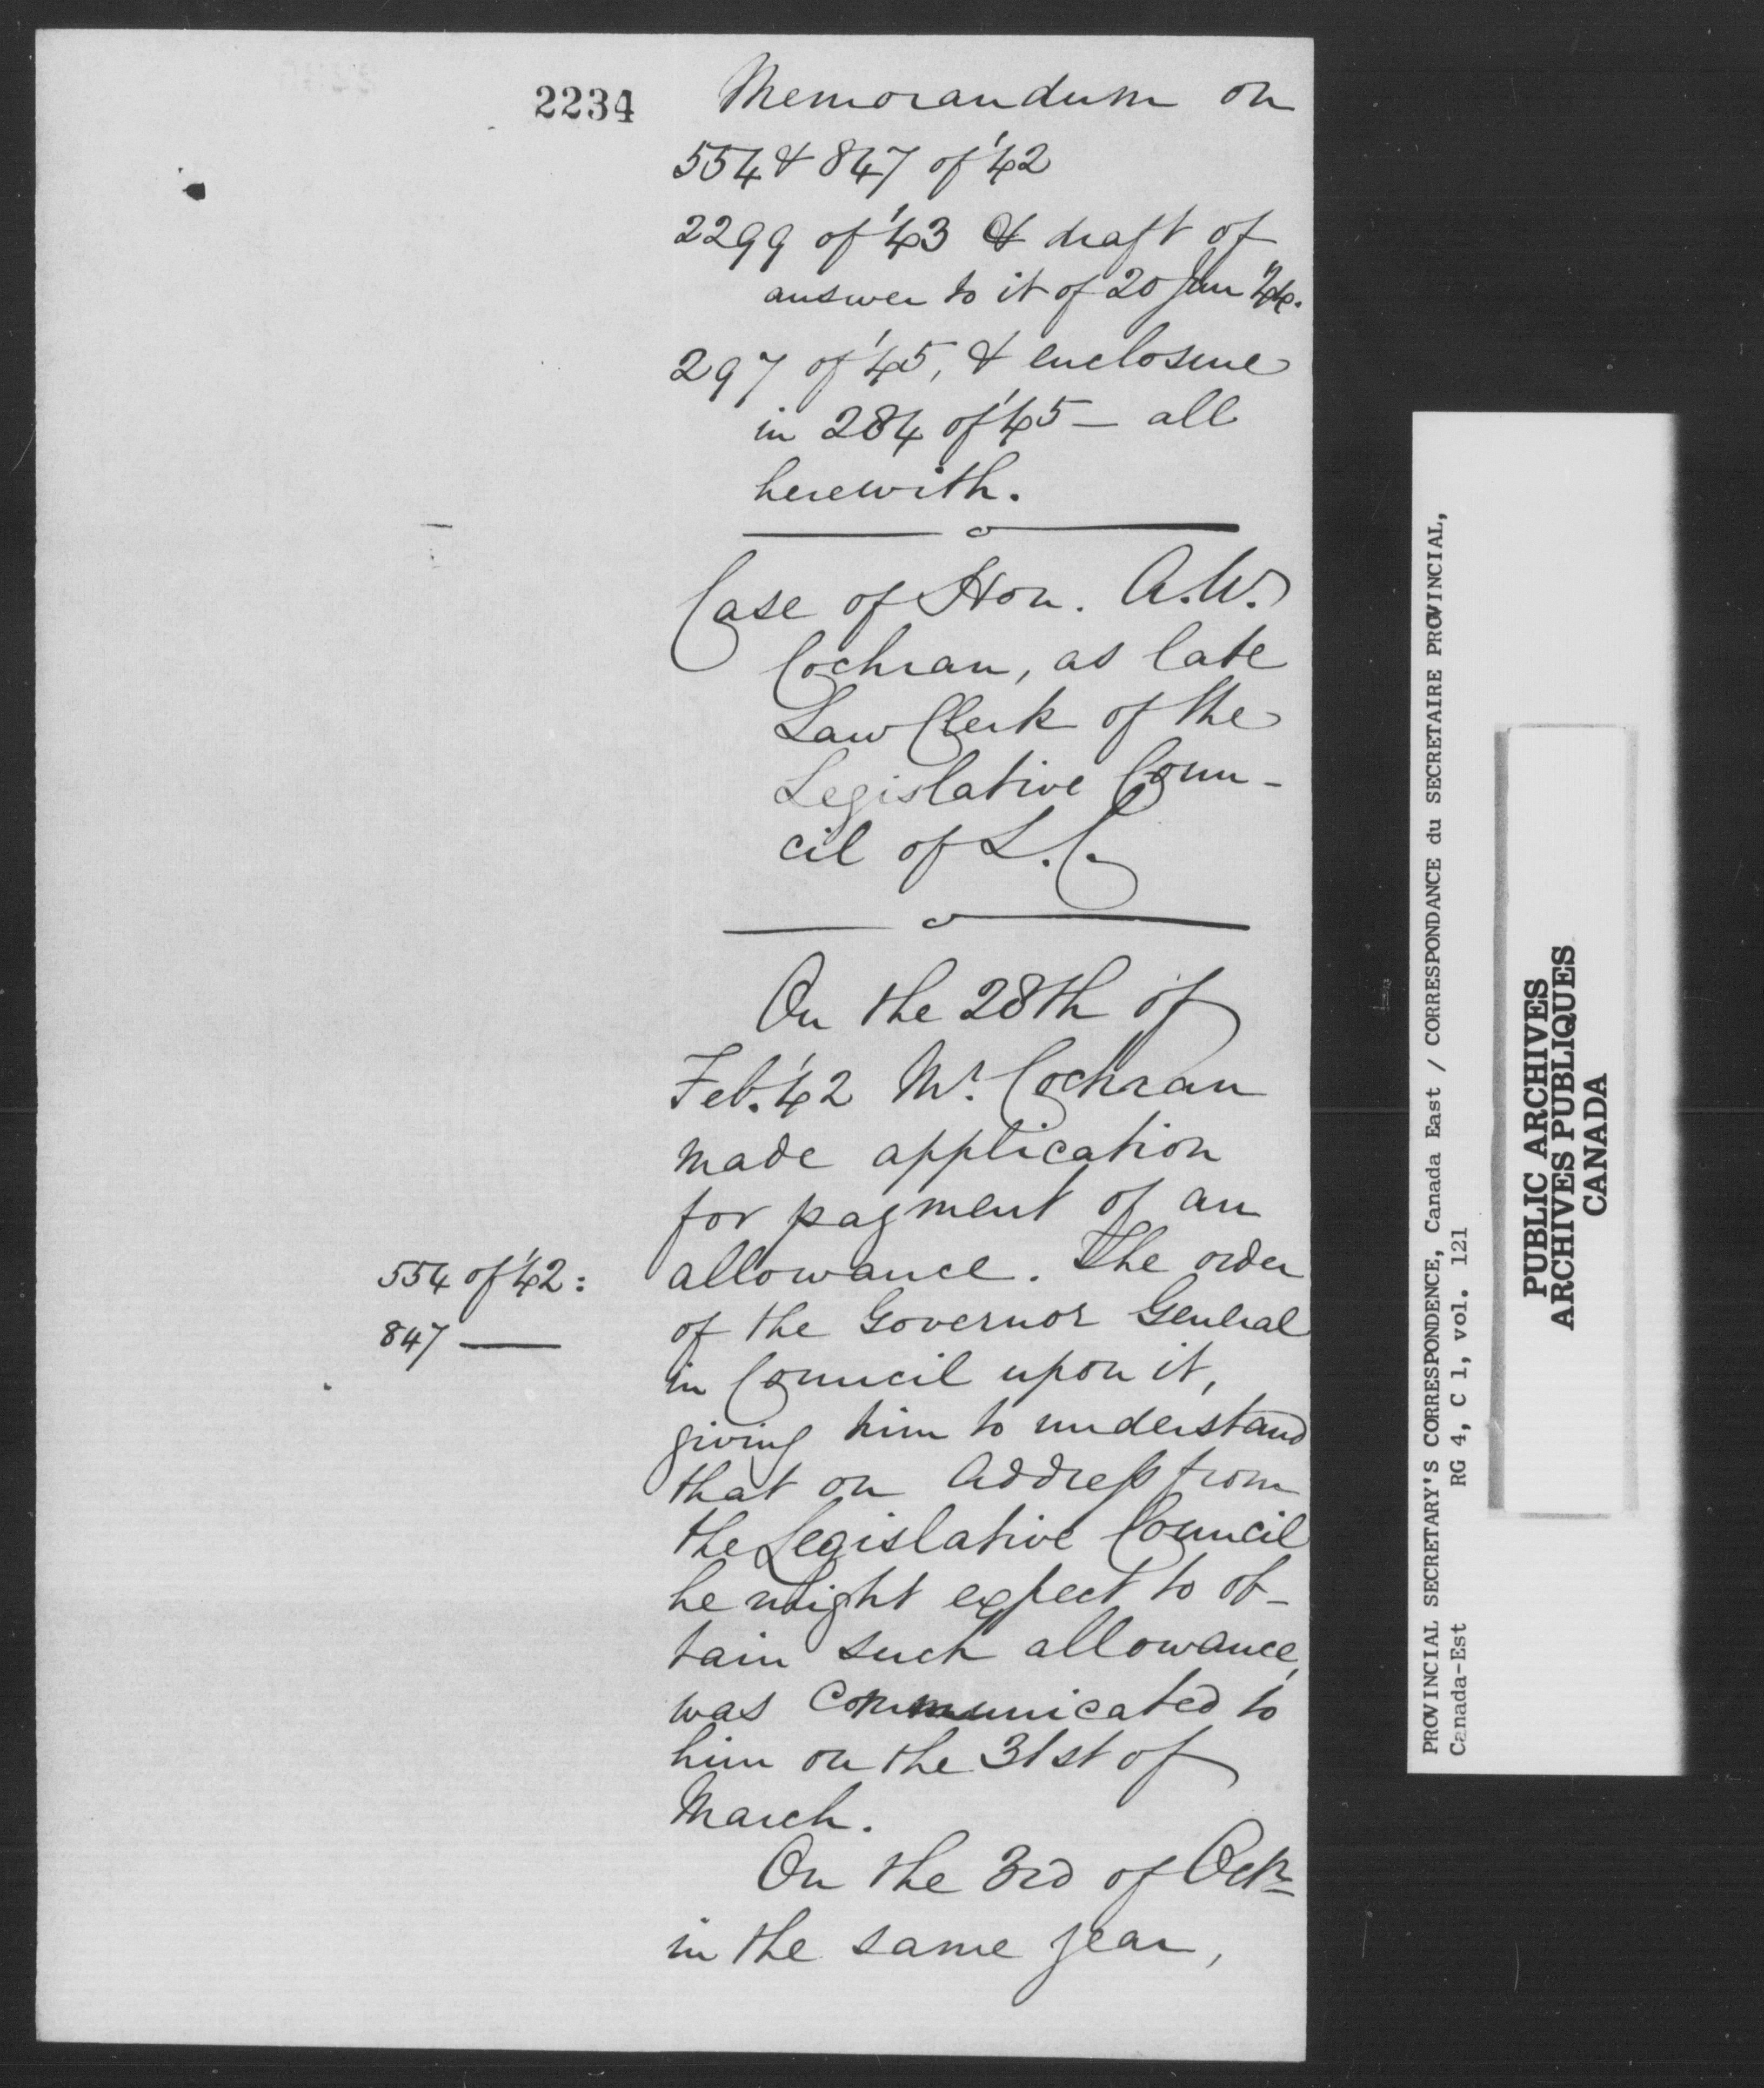 2234
Memorandum on
554 & 847 of '42
2299 of '43 & draft of
answer to it of 20 Jan '44.
297 of '45, & enclosure
in 284 of '45 — all
herewith.
Case of Hon. A.W.
Cochran, as late
Law Clerk of the
Legislative Coun-
cil of L.C.
On the 28th of
Feb. '42 Mr. Cochran
made application
for payment of an
allowance. The order
of the Governor General
in Council upon it,
giving him to understand
that on Address from
the Legislative Council
he might expect to ob-
tain such allowance,
was communicated to
him on the 31st of
March.
On the 3rd of Octr
in the same year,
554 of '42:
847 —
PROVINCIAL SECRETARY'S CORRESPONDENCE, Canada East / CORRESPONDANCE du SECRETAIRE PROVINCIAL,
Canada-Est RG 4, C 1, vol. 121
PUBLIC ARCHIVES
ARCHIVES PUBLIQUES
CANADA